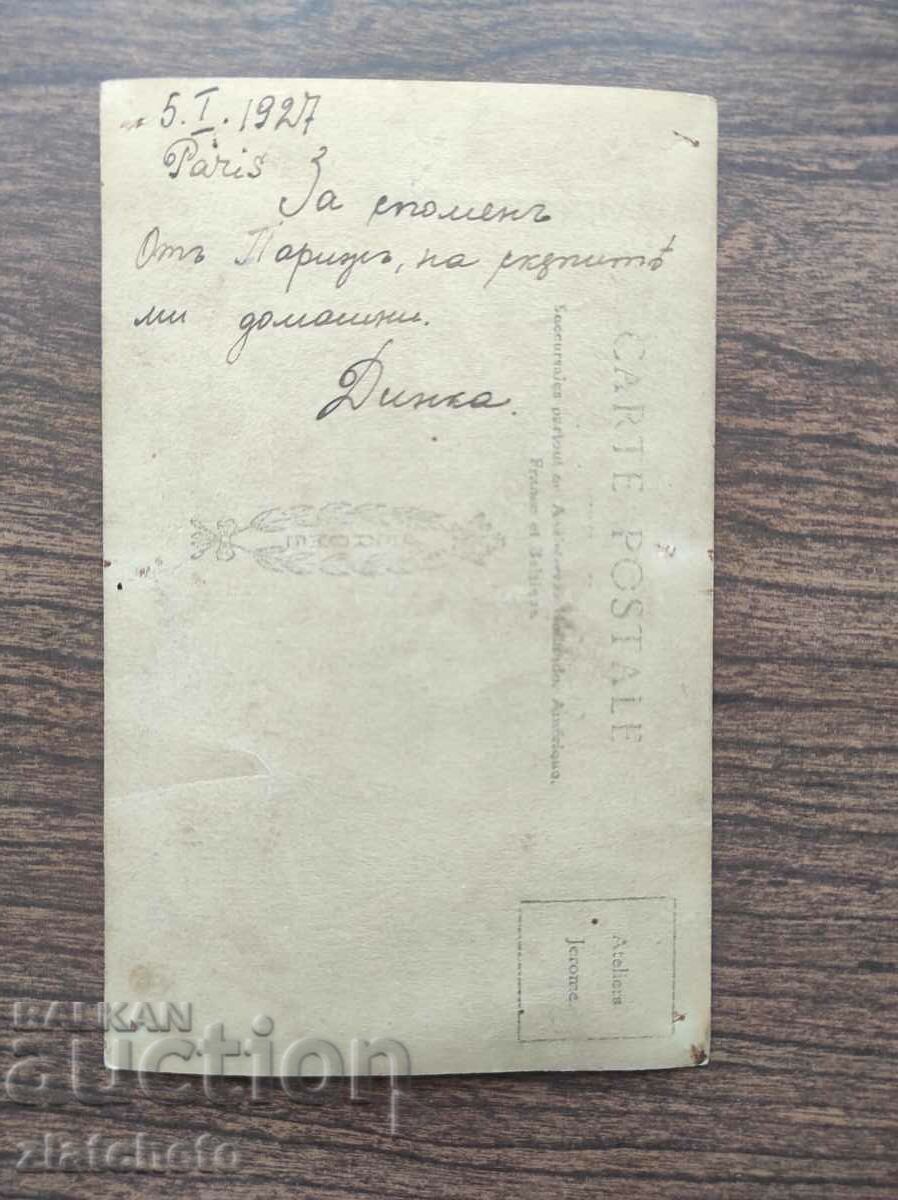 5.I.1927
Paris
За споменъ
Отъ Парижъ, на скѫпитѣ
ми домашни.
Динка.
CARTE POSTALE
Succursales partout en Hollande, Amérique.
France et Belgique
Ateliers
Jerome
BALKAN
auction
zlatcheto